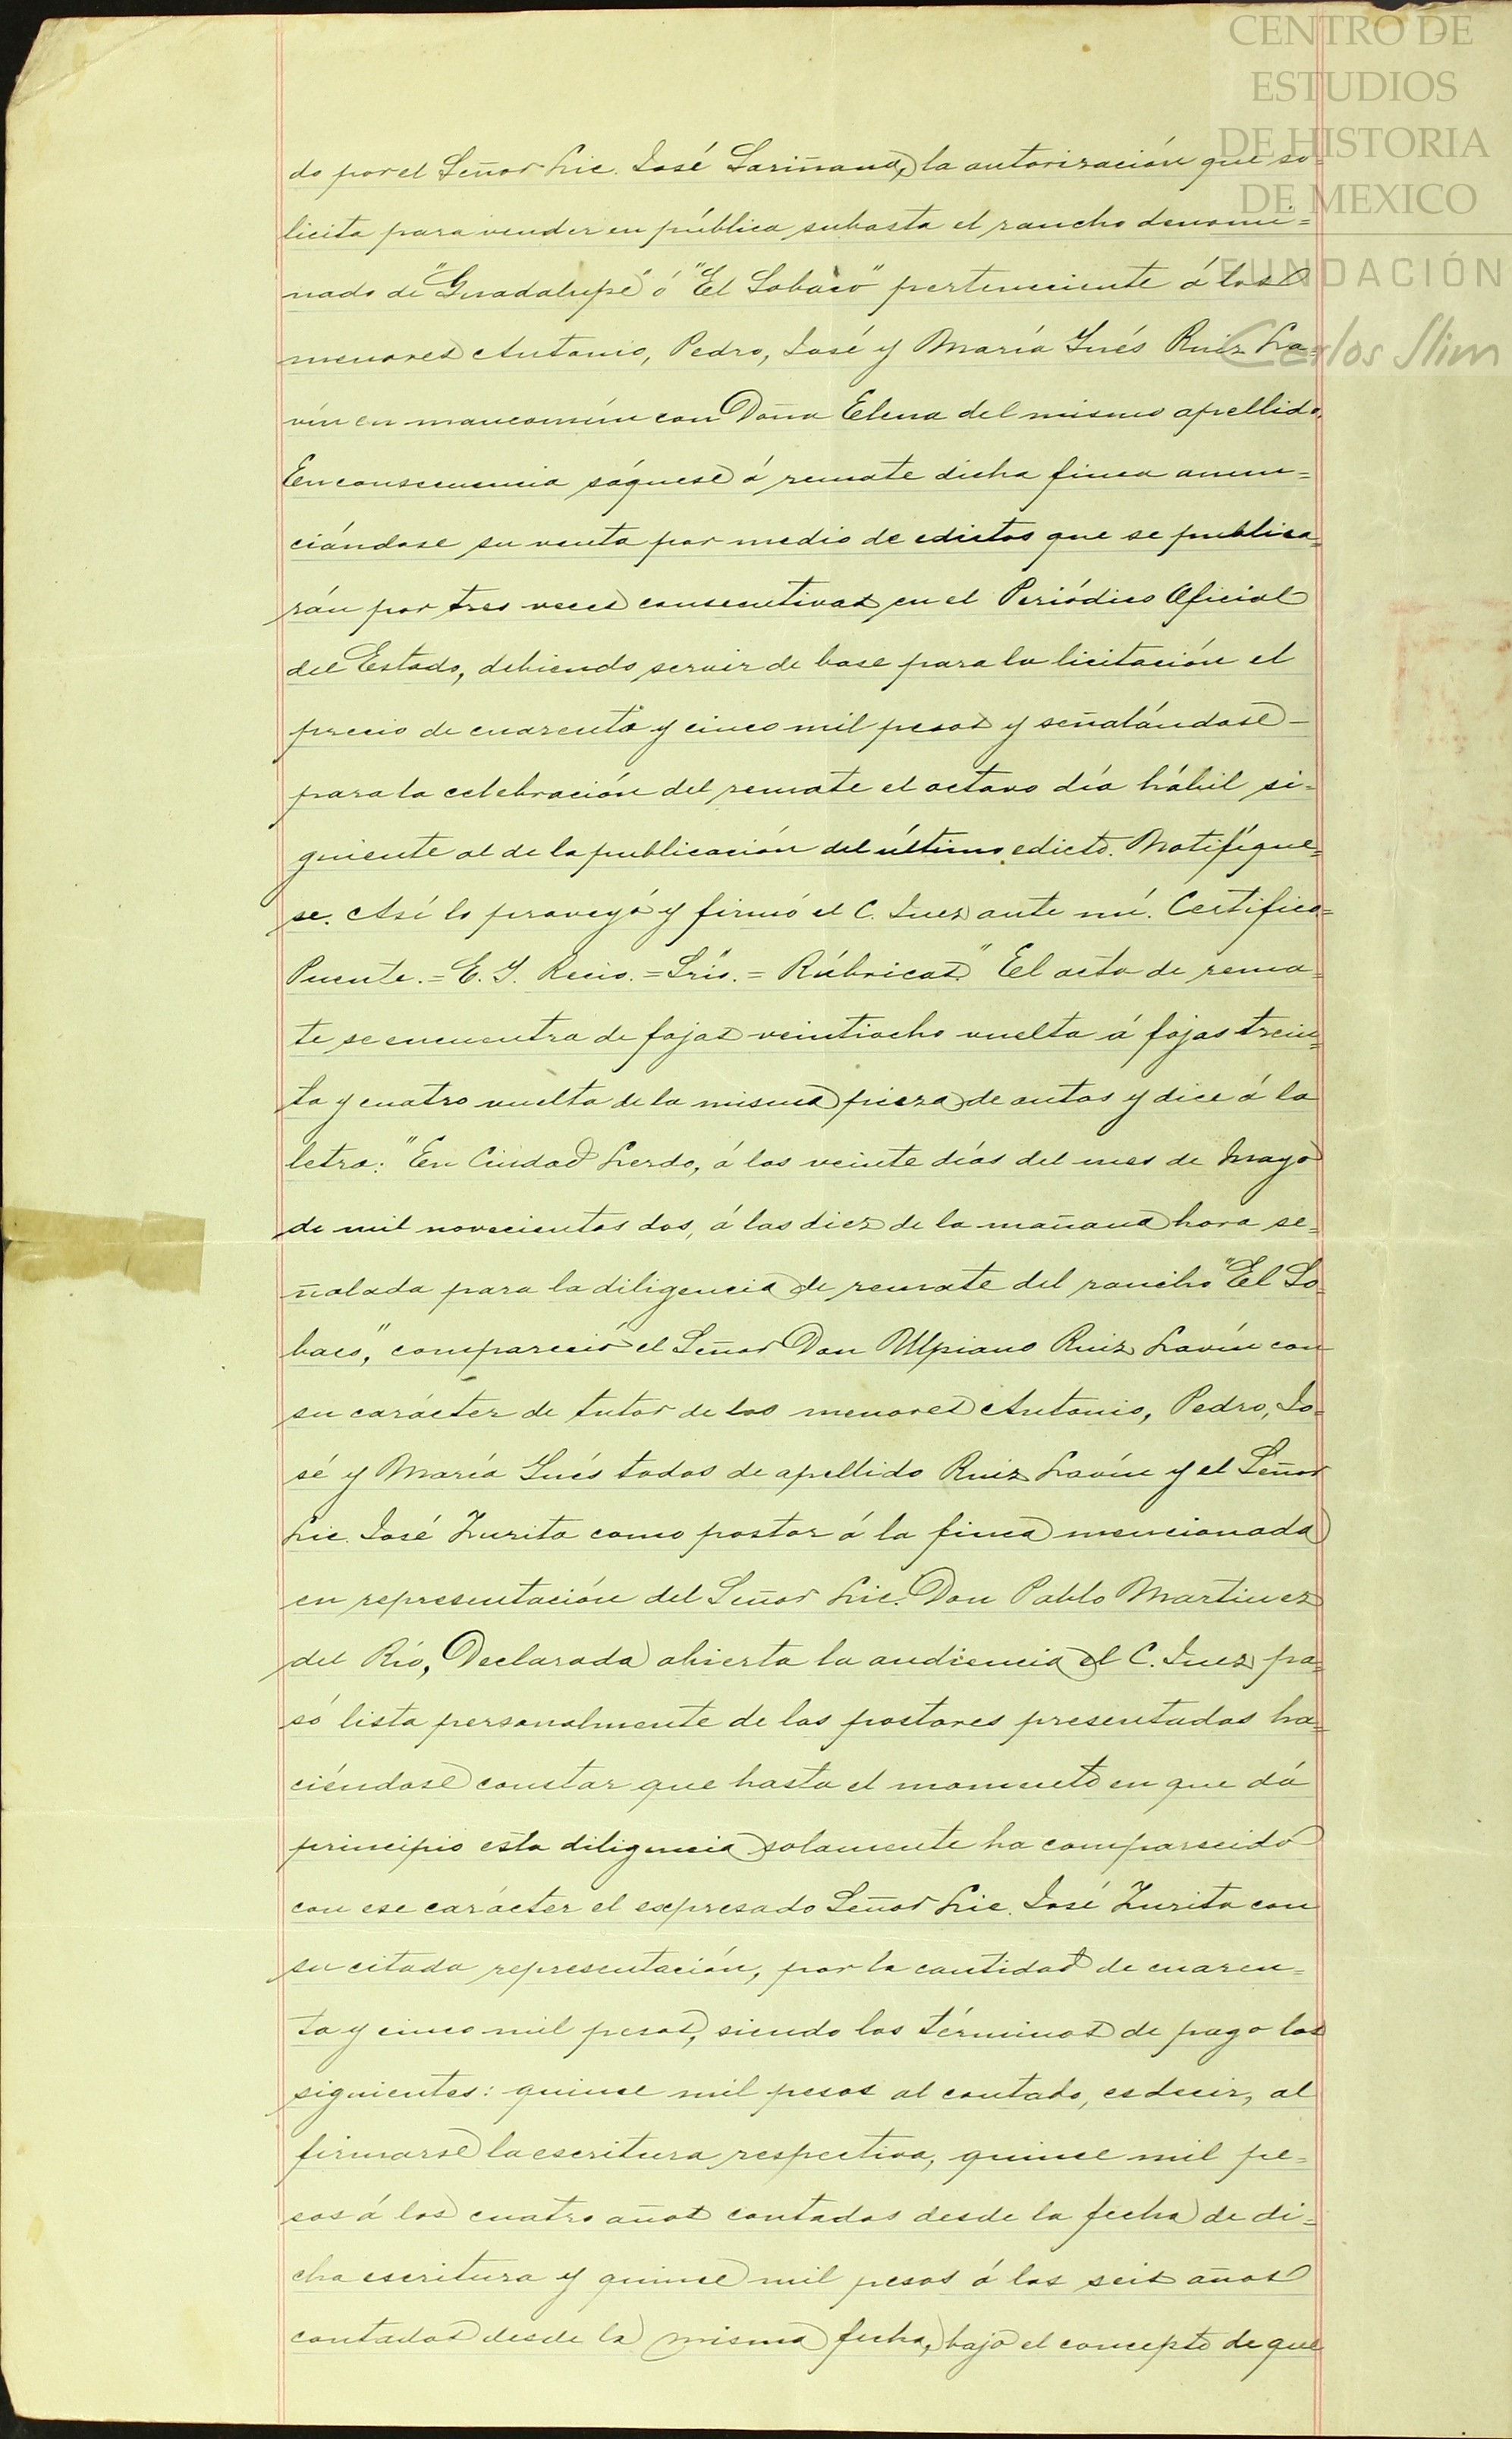 CENTRO DE
ESTUDIOS
DE HISTORIA
DE MEXICO
FUNDACIÓN
Carlos Slim
do por el Señor Lic. José Sariñana, la autorización que so-
licita para vender en pública subasta el rancho denomi=
nado de "Guadalupe" ó "El Sobaco" perteneciente á los
menores Antonio, Pedro, José y María Ynés Ruiz La-
vín en mancomún con Doña Elena del mismo apellido.
En consecuencia sáquese á remate dicha finca anun=
ciándose su venta por medio de edictos que se publica=
rán por tres veces consecutivas en el Periódico Oficial
del Estado, debiendo servir de base para la licitación el
precio de cuarenta y cinco mil pesos y señalándose -
para la celebración del remate el octavo día hábil si=
guiente al de la publicación del último edicto. Notifíque=
se. Así lo proveyó y firmó el C. Juez ante mí. Certifico=
Puente. = E. Y. Recio. = Srio. = Rúbricas." El acta de rema=
te se encuentra de fojas veintiocho vuelta á fojas trein=
ta y cuatro vuelta de la misma pieza de autos y dice á la
letra: "En Ciudad Lerdo, á los veinte días del mes de Mayo
de mil novecientos dos, á las diez de la mañana hora se=
ñalada para la diligencia de remate del rancho "El So-
baco", compareció el Señor Don Ulpiano Ruiz Lavín con
su carácter de tutor de los menores Antonio, Pedro, Jo-
sé y María Ynés todos de apellido Ruiz Lavín y el Señor
Lic. José Zurita como postor á la finca mencionada
en representación del Señor Lic. Don Pablo Martinez
del Río, Declarada abierta la audiencia el C. Juez pa=
só lista personalmente de los postores presentados ha=
ciéndose constar que hasta el momento en que dá
principio esta diligencia solamente ha comparecido
con ese carácter el expresado Señor Lic. José Zurita con
su citada representación, por la cantidad de cuaren=
ta y cinco mil pesos, siendo los términos de pago los
siguientes: quince mil pesos al contado, es decir, al
firmarse la escritura respectiva, quince mil pe=
sos á los cuatro años contados desde la fecha de di=
cha escritura y quince mil pesos á los seis años
contados desde la misma fecha, bajo el concepto de que